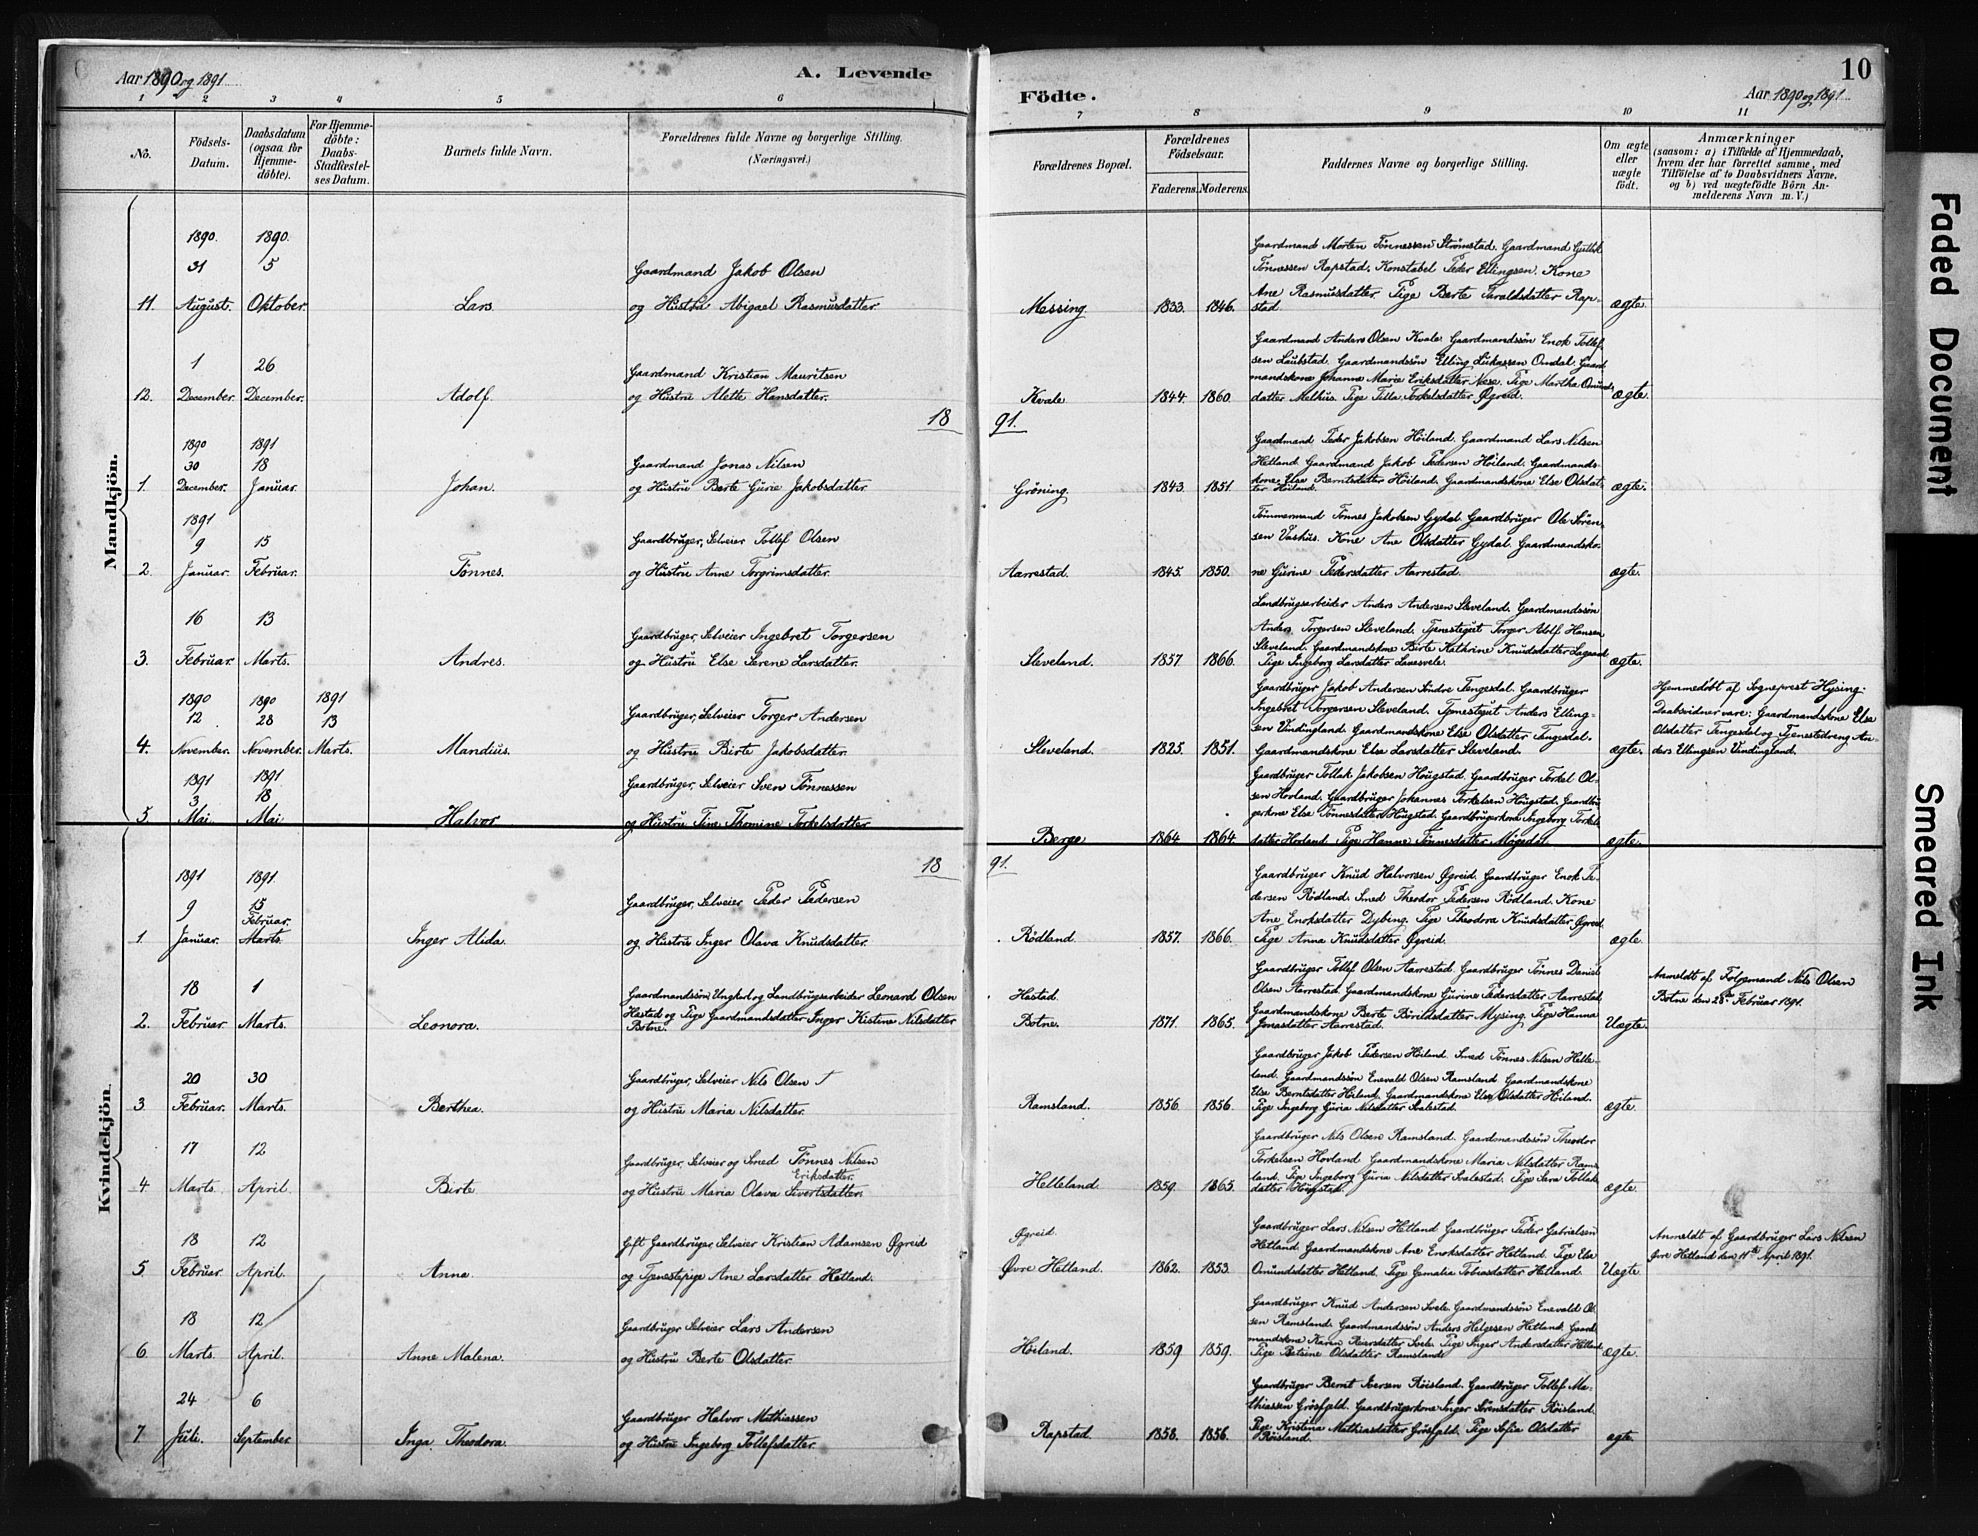 Aar 1890 og 1891
A. Levende
Födte.
Aar 1890 og 1891
10
1 2 3 4 5 6 7 8 9 10 11
No.
Födsels-
Datum.
Daabsdatum
(ogsaa for
Hjemme-
döbte).
For Hjemme-
döbte:
Daabs-
Stadfæstel-
ses Datum.
Barnets fulde Navn.
Forældrenes fulde Navne og borgerlige Stilling.
(Næringsvei.)
Forældrenes Bopæl.
Forældrenes
Födselsaar.
Faderens. Moderens.
Faddernes Navne og borgerlige Stilling.
Om ægte
eller
uægte
födt.
Anmærkninger
(saasom: a) i Tilfælde af Hjemmedaab,
hvem der har forrettet samme, med
Tilföielse af to Daabsvidners Navne.
og b) ved uægtefödte Börn An-
melderens Navn m. V.)
Mandkjön.
1890. 1890.
31 5
11. August. Oktober. Lars
Gaardmand Jakob Olsen
og Hustru Abigael Rasmusdatter.
Messing. 1833. 1846.
Gaardmand Morten Tönnessen Strömstad. Gaardmand
Tönnessen Rapstad. Konstabel Peder Ellingsen. Kone
Ane Rasmusdatter. Pige Berte Taraldsdatter Rap-
stad.
ægte.
1 26
12. December. December. Adolf.
Gaardmand Kristian Mauritsen
og Hustru Alette Hansdatter.
Kvale 1844. 1860.
Gaardmand Anders Olsen Kvale. Gaardmandssön Enok Tollef-
sen Laubstad. Gaardmandssön Elling Lukassen Omdal. Gaard
mandskone Johanne Marie Eriksdatter Nese. Pige Martha Omunds
datter Melhus. Pige Tilla Torkelsdatter Øgreid.
ægte.
18 91.
1890 1891
30 18
1. December. Januar. Johan.
Gaardmand Jonas Nilsen
og Hustru Berte Gurie Jakobsdatter
Gröning. 1843. 1851.
Gaardmand Peder Jakobsen Höiland. Gaardmand Lars Nilsen
Hetland. Gaardmand Jakob Pedersen Höiland. Gaardmands-
kone Else Berntsdatter Höiland. Gaardmandskone Else Olsdat-
ter Höiland.
ægte.
1891
9 15
2. Januar. Februar. Tönnes.
Gaardbruger, Selveier Tollef Olsen
og Hustru Anne Torgrimsdatter.
Aarrestad. 1845. 1850.
Tömmermand Tönnes Jakobsen Gydal. Gaardbruger Ole Sören-
sen Vashus. Kone Ane Olsdatter Gydal. Gaardmandsko-
ne Gurine Pedersdatter Aarrestad.
ægte.
16 13
3. Februar. Marts. Andres.
Gaardbruger, Selveier Ingebret Torgersen
og Hustru Else Serene Larsdatter.
Sleveland. 1857 1866.
Landbrugsarbeider Anders Andersen Sleveland. Gaardmandssön
Anders Torgersen Sleveland. Tjenestegut Torger Adolf Hansen
Sleveland. Gaardmandskone Birte Kathrine Knudsdatter Lagaard
Pige Ingeborg Larsdatter Lavesvele.
ægte.
1890 1890 1891
12 28 13
4. November. November. Marts. Mandius.
Gaardbruger, Selveier Torger Andersen
og Hustru Birte Jakobsdatter.
Sleveland. 1825. 1851.
Gaardbruger Jakob Andersen Söndre Tengesdal. Gaardbruger
Ingebret Torgersen Sleveland. Tjenestegut Anders Elling-
sen Vindingland. Gaardmandskone Else Olsdatter Tengesdal.
Gaardmandskone Else Larsdatter Sleveland.
ægte.
Hjemmedöbt af Sogneprest Hysing.
Daabsvidner vare: Gaardmandskone Else
Olsdatter Tengesdal og Tjenestedreng An-
ders Ellingsen Vindingland.
1891 1891
3 18
5 Mai Mai Halvor
Gaardbruger, Selveier Sven Tönnessen
og Hustru Tina Thomine Torkelsdatter
Berge 1864 1864
Gaardbruger Tollak Jakobsen Hougstad. Gaardbruger Torkel Ol-
sen Hovland. Gaardbruger Johannes Torkelsen Hougstad. Gaardbru
gerkone Else Tönnesdatter Hougstad. Gaardbrugerkone Ingeborg Torkels
datter Hovland. Pige Hanne Tönnesdatter Mögedal.
ægte.
Kvindekjön.
18 91.
1891 1891.
9 15
Februar.
1. Januar. Marts. Inger Alida.
Gaardbruger, Selveier Peder Pedersen
og Hustru Inger Olava Knudsdatter.
Rödland. 1857. 1866.
Gaardbruger Knud Halvorsen Øgreid. Gaardbruger Enok Pe-
dersen Rödland. Smed Theodor Pedersen Rödland. Kone
Ane Enoksdatter Dybing. Pige Theodora Knudsdatter Øgreid
Pige Anna Knudsdatter Øgreid.
ægte.
18 1
2. Februar. Marts. Leonora.
Gaardmandssön, Ungkarl og Landbrugsarbeider Lenard Olsen
Hastad og Pige Gaardmandsdatter Inger Kistine Nilsdatter
Botne.
Hastad.
Botne. 1871. 1865.
Gaardbruger Tollef Olsen Aarrestad. Gaardbruger Tönnes Daniel
Olsen Aarrestad. Gaardmandskone Gurine Pedersdatter Aarrestad
Gaardmandskone Berte Börildsdatter Mysing. Pige Hanna
Jonasdatter Aarrestad.
Uægte.
Anmeldt af Folgemand Nils Olsen
Botne den 28de Februar 1891.
20 30
3. Februar. Marts. Berthea.
Gaardbruger, Selveier Nils Olsen
og Hustru Maria Nilsdatter.
Ramsland. 1856. 1856.
Gaardbruger Jakob Pedersen Höiland. Smed Tönnes Nilsen Helle-
land. Gaardmandssön Enevald Olsen Ramsland. Gaardmandskone
Else Berntsdatter Höiland. Gaardmandskone Else Olsdatter Höiland.
Pige Ingeborg Guria Nilsdatter Svalestad.
ægte.
17 12
4 Marts. April. Birte
Gaardbruger, Selveier og Smed Tönnes Nilsen
Eriksdatter.
og Hustru Maria Olava Sivertsdatter.
Helleland. 1859. 1865.
Gaardbruger Nils Olsen Ramsland. Gaardmandssön Theodor
Torkelsen Hovland. Gaardmandskone Maria Nilsdatter Rams
land. Pige Ingeborg Guria Nilsdatter Svalestad. Pige Sara Tollaks
datter Hougstad.
ægte.
18 12
5. Februar. April. Anna.
Gift Gaardbruger, Selveier Kristian Adamsen Øgreid
og Tjenestepige Ane Larsdatter Hetland.
Øgreid.
Øvre Hetland. 1862. 1853.
Gaardbruger Lars Nilsen Hetland. Gaardbruger Peder Gabrielsen
Hetland. Gaardmandskone Ane Enoksdatter Hetland. Pige Else
Omundsdatter Hetland. Pige Gemalia Tobiasdatter Hetland.
Uægte
Anmeldt af Gaardbruger Lars Nilsen
Øvre Hetland den 11te April 1891.
18 12
6. Marts. April. Anne Malena.
Gaardbruger Selveier Lars Andersen
og Hustru Berte Olsdatter.
Höiland. 1859 1859.
Gaardbruger Knud Andersen Svele. Gaardmandssön Enevald Ol-
sen Ramsland. Gaardmandssön Anders Helgesen Hetland. Gaard
mandskone Karen Peersdatter Svele. Pige Inger Andersdatter Hetland
Pige Betsine Olsdatter Ramsland.
ægte.
24 6
7 Juli. September. Inga Theodora.
Gaardbruger Halvor Mathiassen
og Hustru Ingeborg Tollefsdatter.
Rapstad. 1858. 1856.
Gaardbruger Bernt Iversen Röisland. Gaardbruger Tollef Ma-
thiassen Grösfjeld. Gaardbrugerkone Inger Sörensdatter Röisland.
Pige Kristina Mathiasdatter Grösfjeld. Pige Sofia Olsdatter
Röisland.
ægte.
Faded Document
Smeared Ink